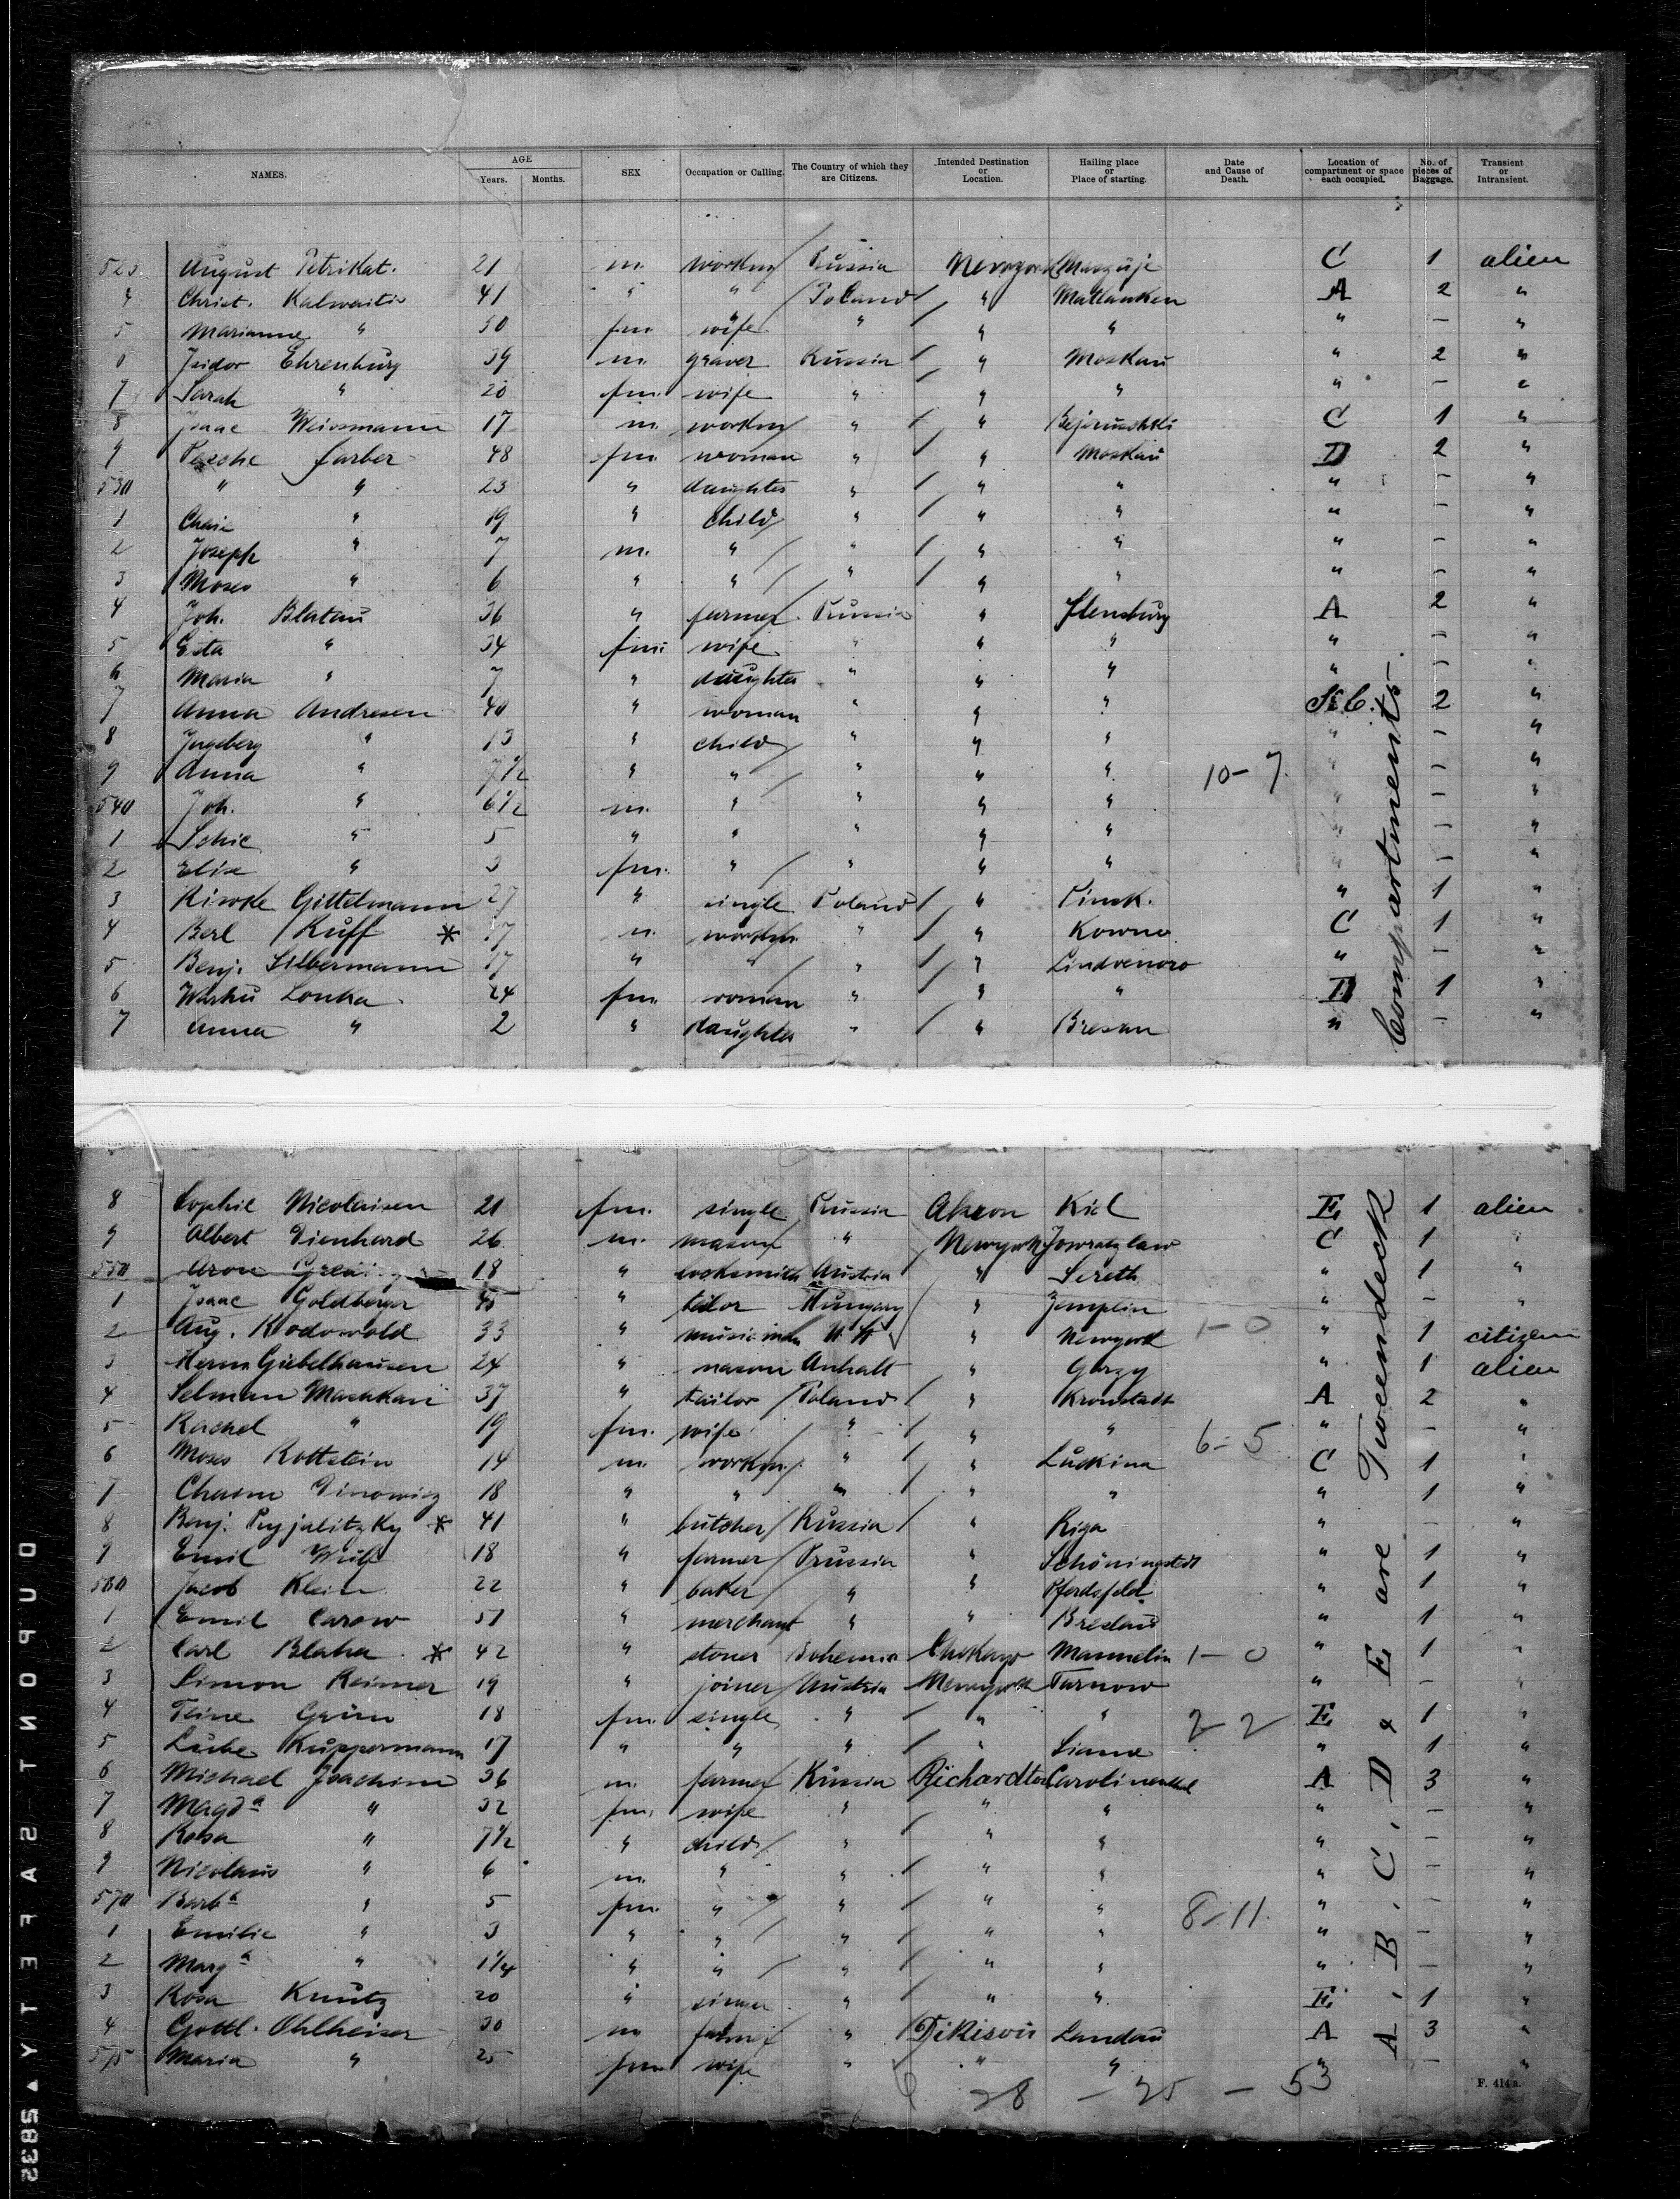 NAMES. AGE Years. Months. SEX Occupation or Calling. The Country of which they are Citizens. Intended Destination or Location. Hailing place or Place of starting. Date and Cause of Death. Location of compartment or space each occupied. No. of pieces of Baggage. Transient or Intransient.
523. August Petrikat. 21 m. workm Prussia C 1 alien
4 Christ. Kalwaitis 41 " " Poland " Matlauken A 2 "
5 Marianne " 30 fm wife " " " " - "
6 Isidor Ehrenburg 39 m. graver Russia " Moskau " 2 "
7 Sarah " 20 fm. wife " " " " - "
8 Isaac Weissmann 17 m. workm " " C 1 "
9 Pesche Farber 48 fm woman " " Moskau D 2 "
530 " " 23 " daughter " " " " - "
1 " 19 " child " " " " - "
2 Joseph " 7 m. " " " " " - "
3 Moses " 6 " " " " " " - "
4 Joh. Blatau 36 " farmer Prussia " Flensburg A 2 "
5 " 34 fm: wife " " " " - "
6 Maria " 7 " daughter " " " " - "
7 Anna Andresen 40 " woman " " " 2 "
8 Ingeberg " 13 " child " " " " - "
9 Anna " 7½ " " " " " 10-7. " - "
540 Joh. " 6½ m. " " " " " - "
1 " 5 " " " " " " - "
2 Elise " 3 fm. " " " " " - "
3 Riwke Gittelmann 27 " single Poland " Pinsk. " 1 "
4 Berl Kuff * 17 m. workm " " Kowno C 1 "
5 Benj. Silbermann 17 " " " " " - "
6 Lonka 24 fm. woman " " " D 1 "
7 Anna " 2 " daughter " " Bresan " - "
8 Sophie Nicolaisen 21 fm. single Prussia Akron Kiel E 1 alien
9 Albert Dienhard 26 m. mason " Newyork Jnowratzlaw C 1 "
550 Aron 18 " locksmith Austria " Sereth " 1 "
1 Isaac Goldberger 45 " tailor Hungary " Zemplin " - "
2 Aug. Kodowold 33 " musician " Newyork 1-0 " 1 citizen
3 Herm Giebelhausen 24 " mason Anhalt " " 1 alien
4 Selman Maschkau 37 " tailor Poland " Kronstadt A 2 "
5 Rachel " 19 fm. wife " " " 6-5 " - "
6 Moses Rottstein 14 m. workm. " " Luckina C 1 "
7 Chasm Dinowicz 18 " " " " " " 1 "
8 Benj. Pryjalitzky * 41 " butcher Russia " Riga " - "
9 Emil Wulf 18 " farmer Prussia " Schöningstedt " 1 "
560 Jacob Klein 22 " baker " " Pferdsfeld " 1 "
1 Emil Carow 51 " merchant " " Breslau " 1 "
2 Carl Blaha * 42 " stoner Bohemia Chokago 1-0 " 1 "
3 Simon Reimer 19 " joiner Austria Newyork Tarnow " - "
4 Teine Grün 18 fm. single " " " 2-2 E 1 "
5 Laibe Kuppermann 17 " " " " " 1 "
6 Michael Joachim 36 m. farmer Russia A 3 "
7 Magda " 32 fm. wife " " " " - "
8 Rosa " 7½ " child " " " " - "
9 Nicolaus " 6 m. " " " " " - "
570 Barba " 5 fm. " " " " 8-11. " - "
1 Emilie " 3 " " " " " " - "
2 Marga " 1¼ " " " " " " - "
3 Rosa Knutz 20 " " " " E 1 "
4 Gottl. Ohlheiser 30 m farmer " Dikisow Landau A 3 "
575 Maria " 25 fm wife " " " " - "
28 - 25 - 53
F. 414 a.
A. B. C. D & E are Tweendeck Compartments.
DUPONT SAFETY 5832